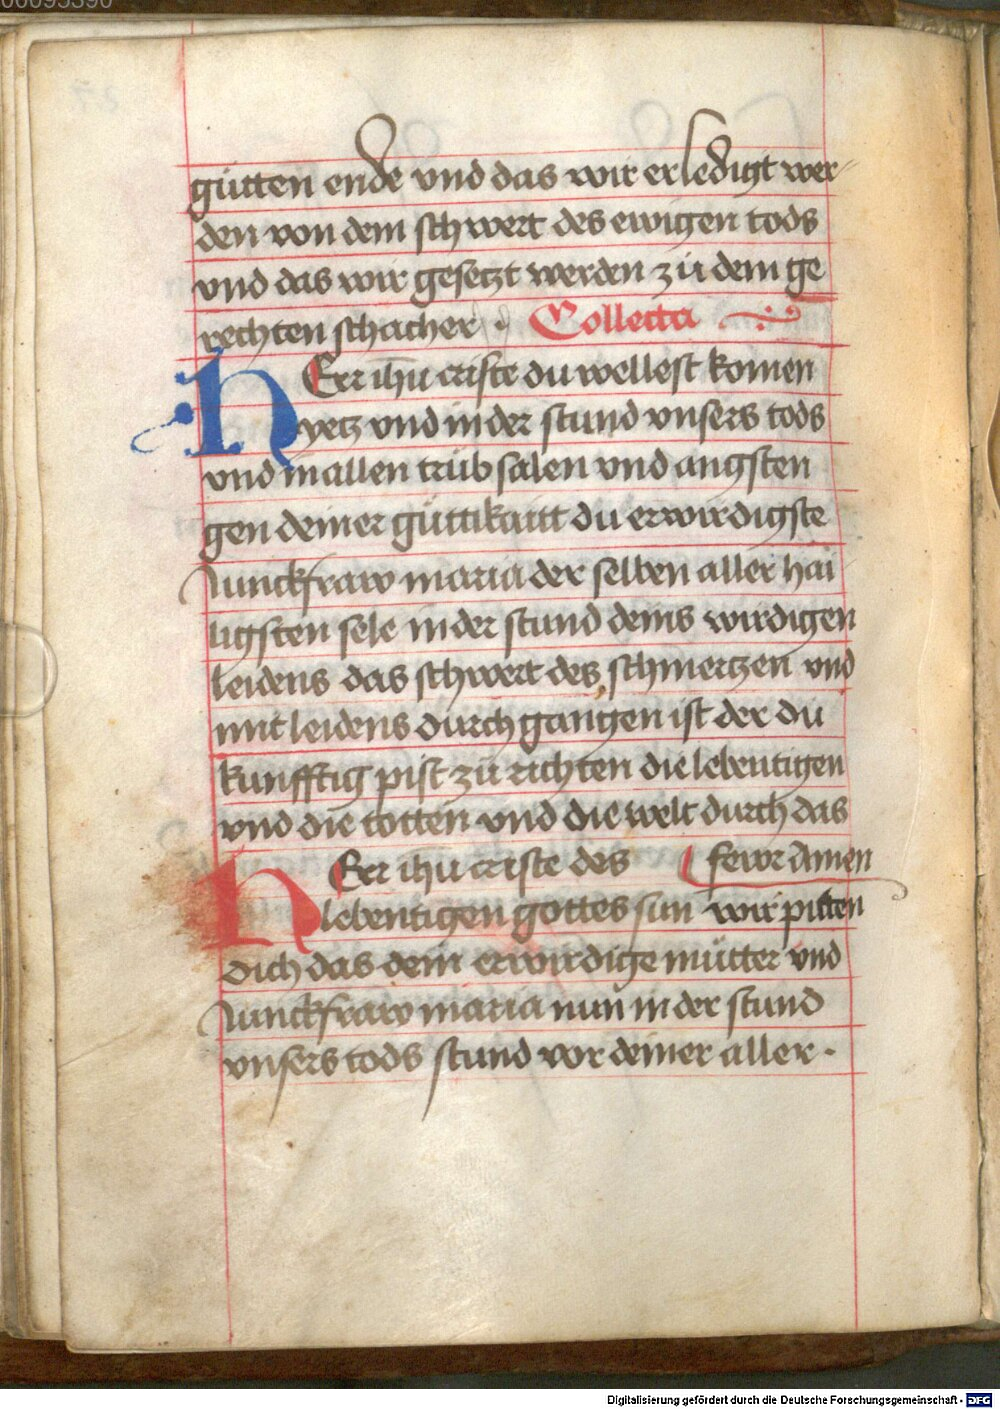 00095390
gütten ende vnd das wir erledigt wer
den von dem schwert des ewigen tods
vnd das wir gesetzt werden zü dem ge
rechten schacher · Collecta
HErr ihu criste du wellest komen
yetz vnd in der stund vnsers tods
vnd in allen trübsalen vnd angsten
gen deiner güttikaitt du erwirdigste
Junckfraw maria der selben aller hai
ligsten sele in der stund deins wirdigen
leidens das schwert des schmertzen vnd
mit leidens durch gangen ist der du
kunfftig pist zü richten die lebentigen
vnd die totten vnd die welt durch das
fewr Amen
HErr ihu criste des
lebentigen gottes sun wir pitten
dich das dein erwirdige mütter vnd
Junckfraw maria nun in der stund
vnsers tods stund vor deiner aller ·
Digitalisierung gefördert durch die Deutsche Forschungsgemeinschaft - DFG